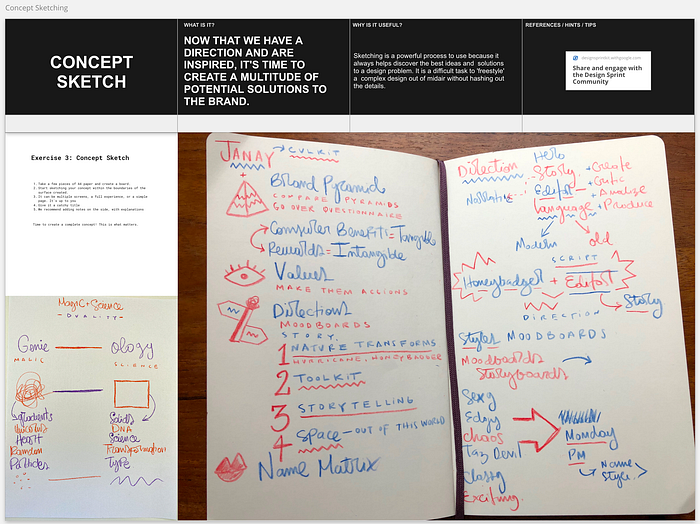 Concept Sketching
CONCEPT
SKETCH
WHAT IS IT?
NOW THAT WE HAVE A
DIRECTION AND ARE
INSPIRED, IT'S TIME TO
CREATE A MULTITUDE OF
POTENTIAL SOLUTIONS TO
THE BRAND.
WHY IS IT USEFUL?
Sketching is a powerful process to use because it
always helps discover the best ideas and solutions
to a design problem. It is a difficult task to 'freestyle'
a complex design out of midair without hashing out
the details.
REFERENCES / HINTS / TIPS
designsprintkit.withgoogle.com
Share and engage with
the Design Sprint
Community
Exercise 3: Concept Sketch
1. Take a few pieces of A4 paper and create a board
2. Start sketching your concept within the boundaries of the
surface created
3. It can be multiple screens, a full experience, or a simple
page. It's up to you
4. Give it a catchy title
5. We recommend adding notes on the side, with explanations
Time to create a complete concept! This is what matters.
Magic + Science
- DUALITY -
Genie
ology
MAGIC
SCIENCE
gradients
Unicorns
Heart
Random
Particles
Solids
DNA
Science
Transformation
Type
JANAY → CULTKIT
+
Brand Pyramid
COMPARE PYRAMIDS
GO OVER QUESTIONNAIRE
Computer Benefits = Tangible
Rewards = Intangible
Values
MAKE THEM ACTIONS
Directions
MOODBOARDS
STORY,
1 NATURE TRANSFORMS
HURRICANE, HONEYBADGER
2 TOOLKIT
3 STORYTELLING
4 SPACE - OUT OF THIS WORLD
Name Matrix
Hero
Direction - Story
Editor
Language
+ Create
+ Critic
+ Analize
+ Produce
Modern
old
SCRIPT
Honeybadger + Editor
Story
DIRECTION
Styles MOODBOARDS
Moodboards
Storyboards
Sexy
Edgy
chaos
Taz Devil
Classy
Exciting
Monday
PM
Name
Style